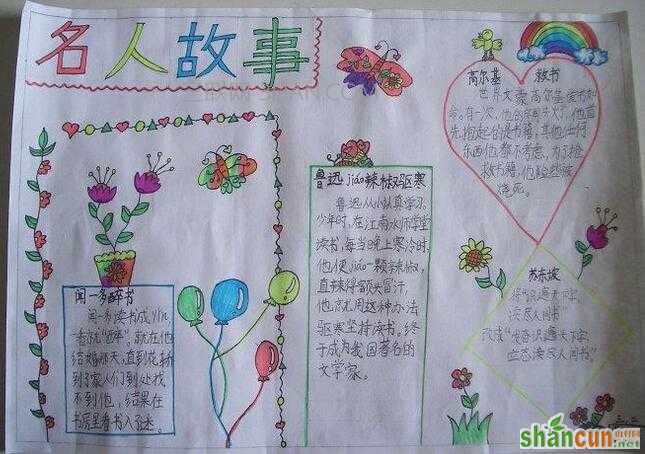 名人故事
高尔基 救书
世界文豪高尔基爱书如
命,有一次,他的房间失火了,他首
先抱起的是书籍,其他任何
东西他都不考虑,为了抢
救书籍,他险些被
烧死。
鲁迅jiáo辣椒驱寒
鲁迅从小认真学习。
少年时,在江南水师学堂
读书,每当晚上寒冷时
他便jiáo一颗辣椒,
直辣得额头冒汗,
他就用这种办法
驱寒坚持读书。终
于成为我国著名的
文学家。
闻一多醉书
闻一多读书成yǐn
一看就"醉",就在他
结婚那天,直到花轿
到了家人们到处找
不到他,结果在
书房里看书入了迷。
苏东坡
"识遍天下字,
读尽人间书"
改成"发奋识遍天下字,
立志读尽人间书。"
shancun